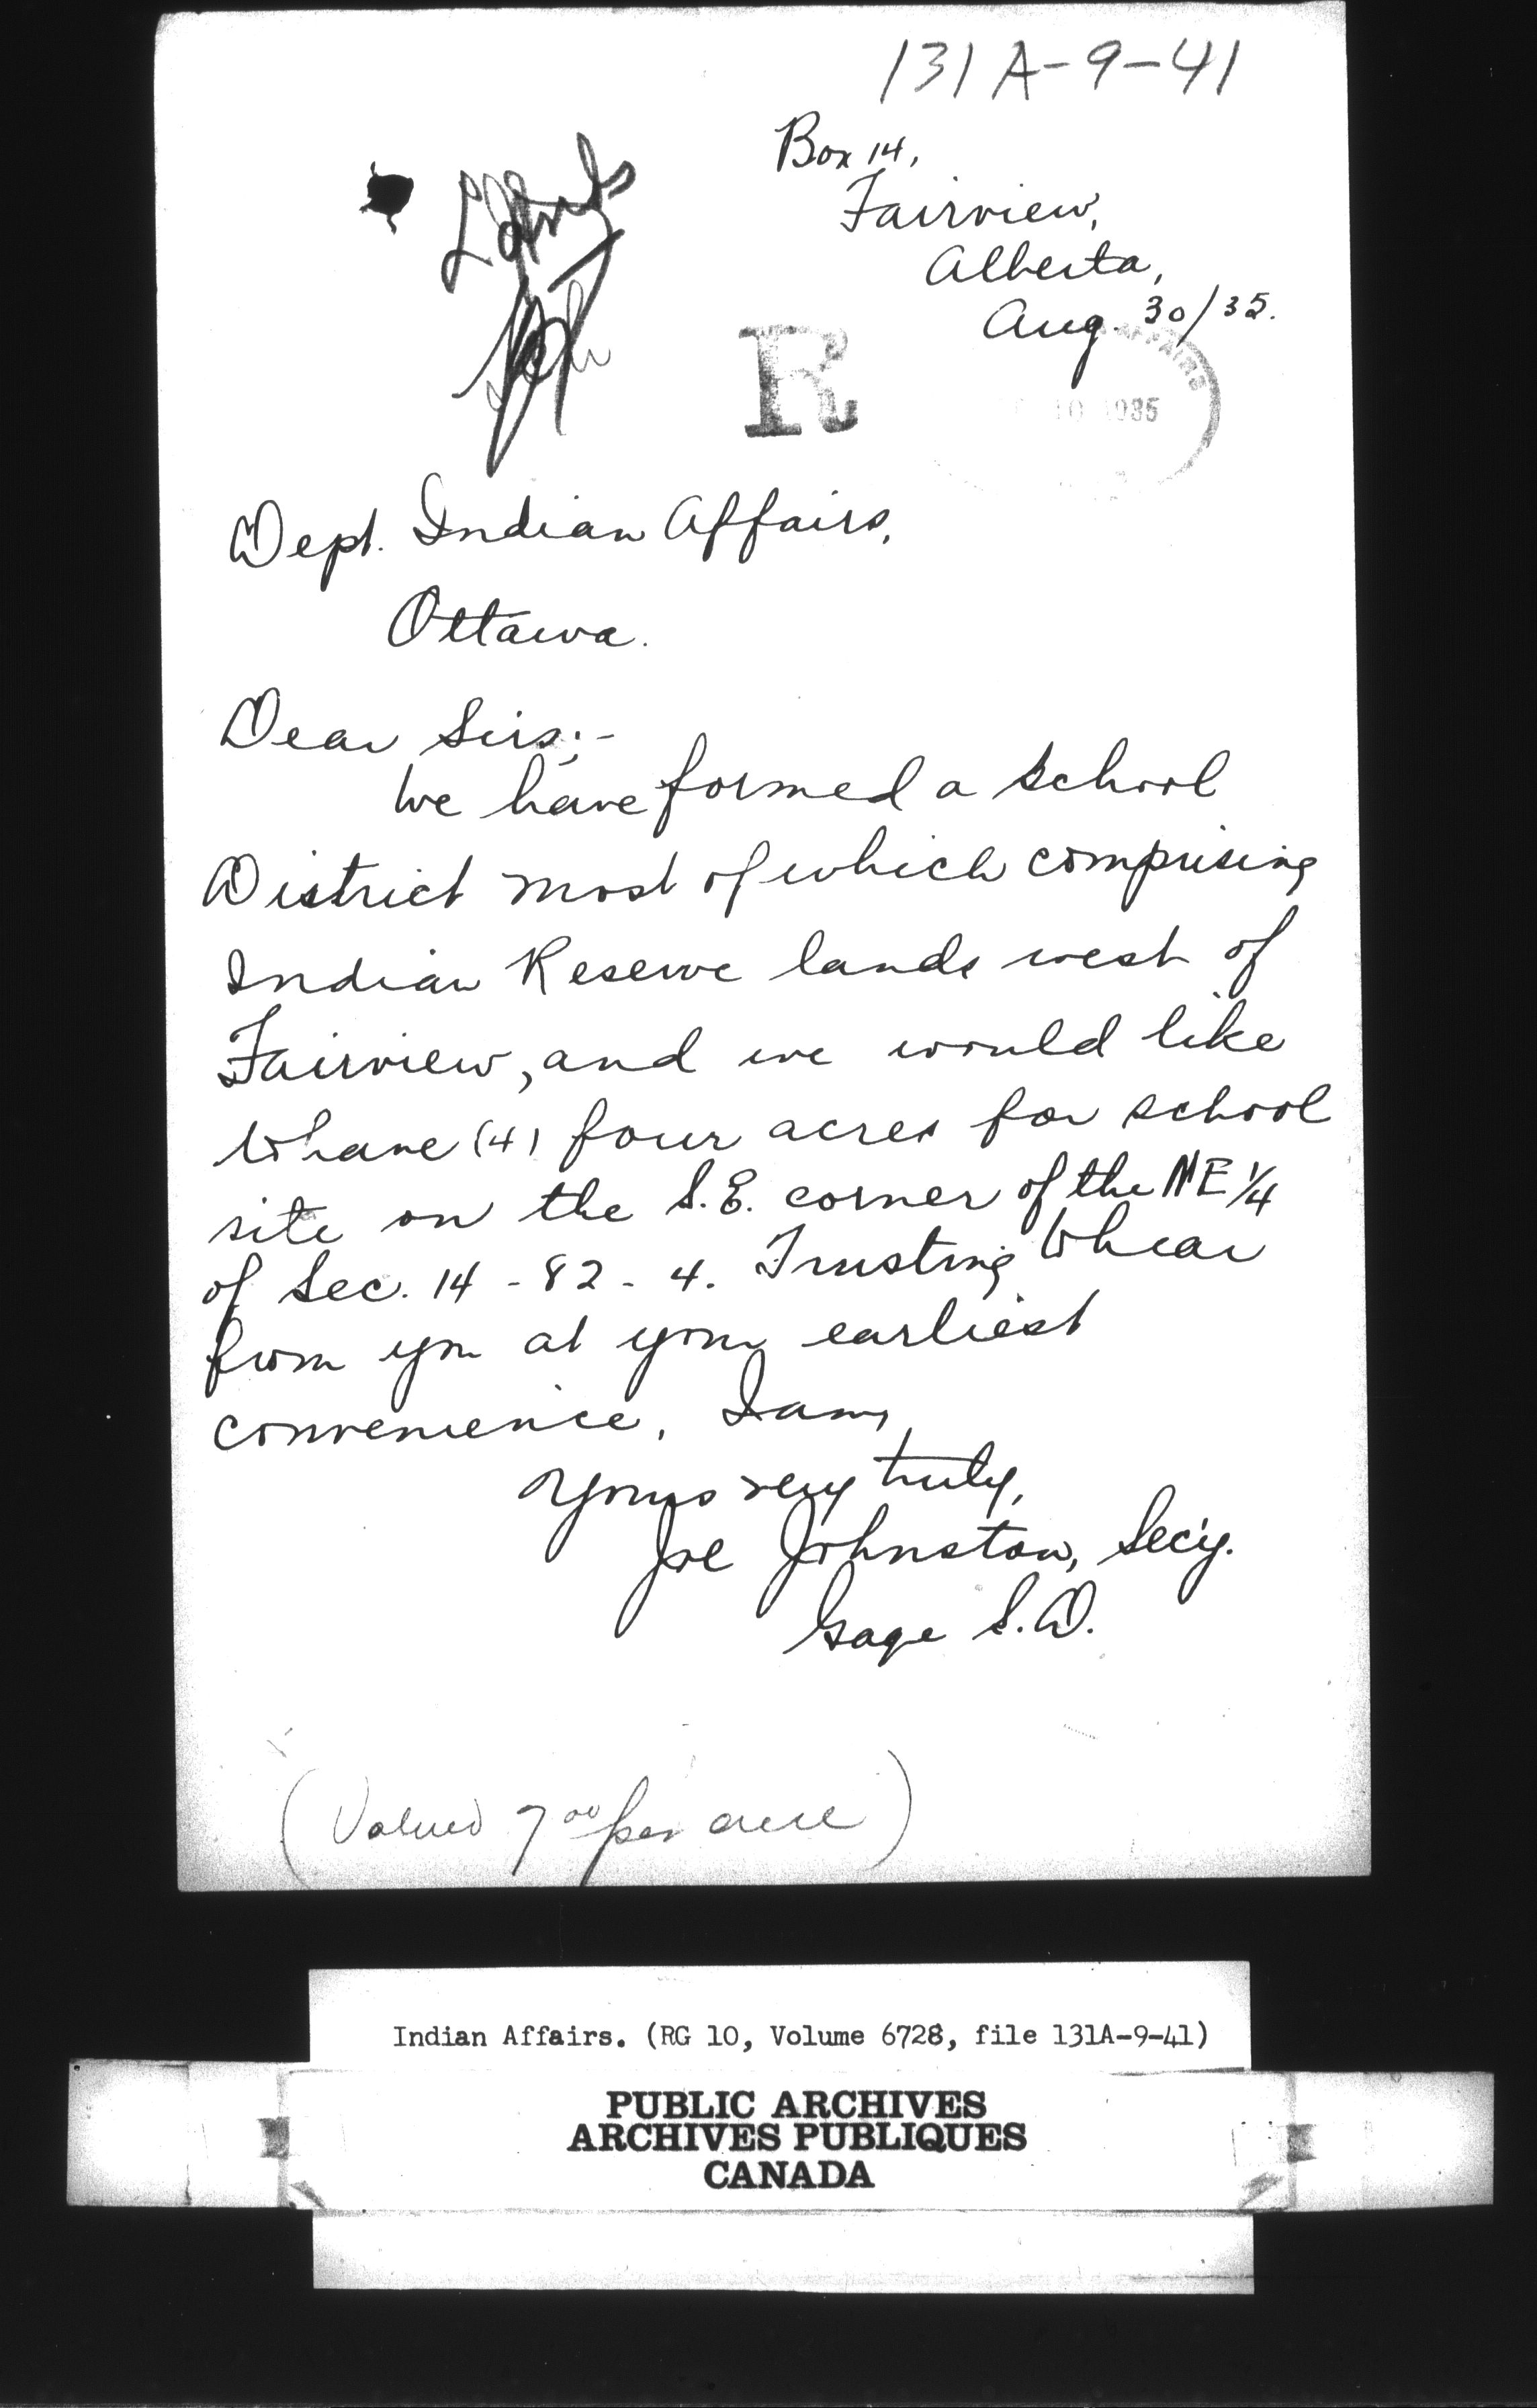 131A-9-41
Box 14,
Fairview,
Alberta,
Aug. 30/35.
R
AFFAIRS
10 1935
Dept. Indian Affairs,
Ottawa.
Dear Sirs:-
We have formed a school
District most of which comprising
Indian Reserve lands west of
Fairview, and we would like
to have (4) four acres for school
site on the S.E. corner of the NE 1/4
of Sec. 14 - 82 - 4. Trusting to hear
from you at your earliest
convenience, I am,
Yours very truly,
Joe Johnston, Sec'y.
Gage S.D.
(Valued 7 00 per acre)
Indian Affairs. (RG 10, Volume 6728, file 131A-9-41)
PUBLIC ARCHIVES
ARCHIVES PUBLIQUES
CANADA